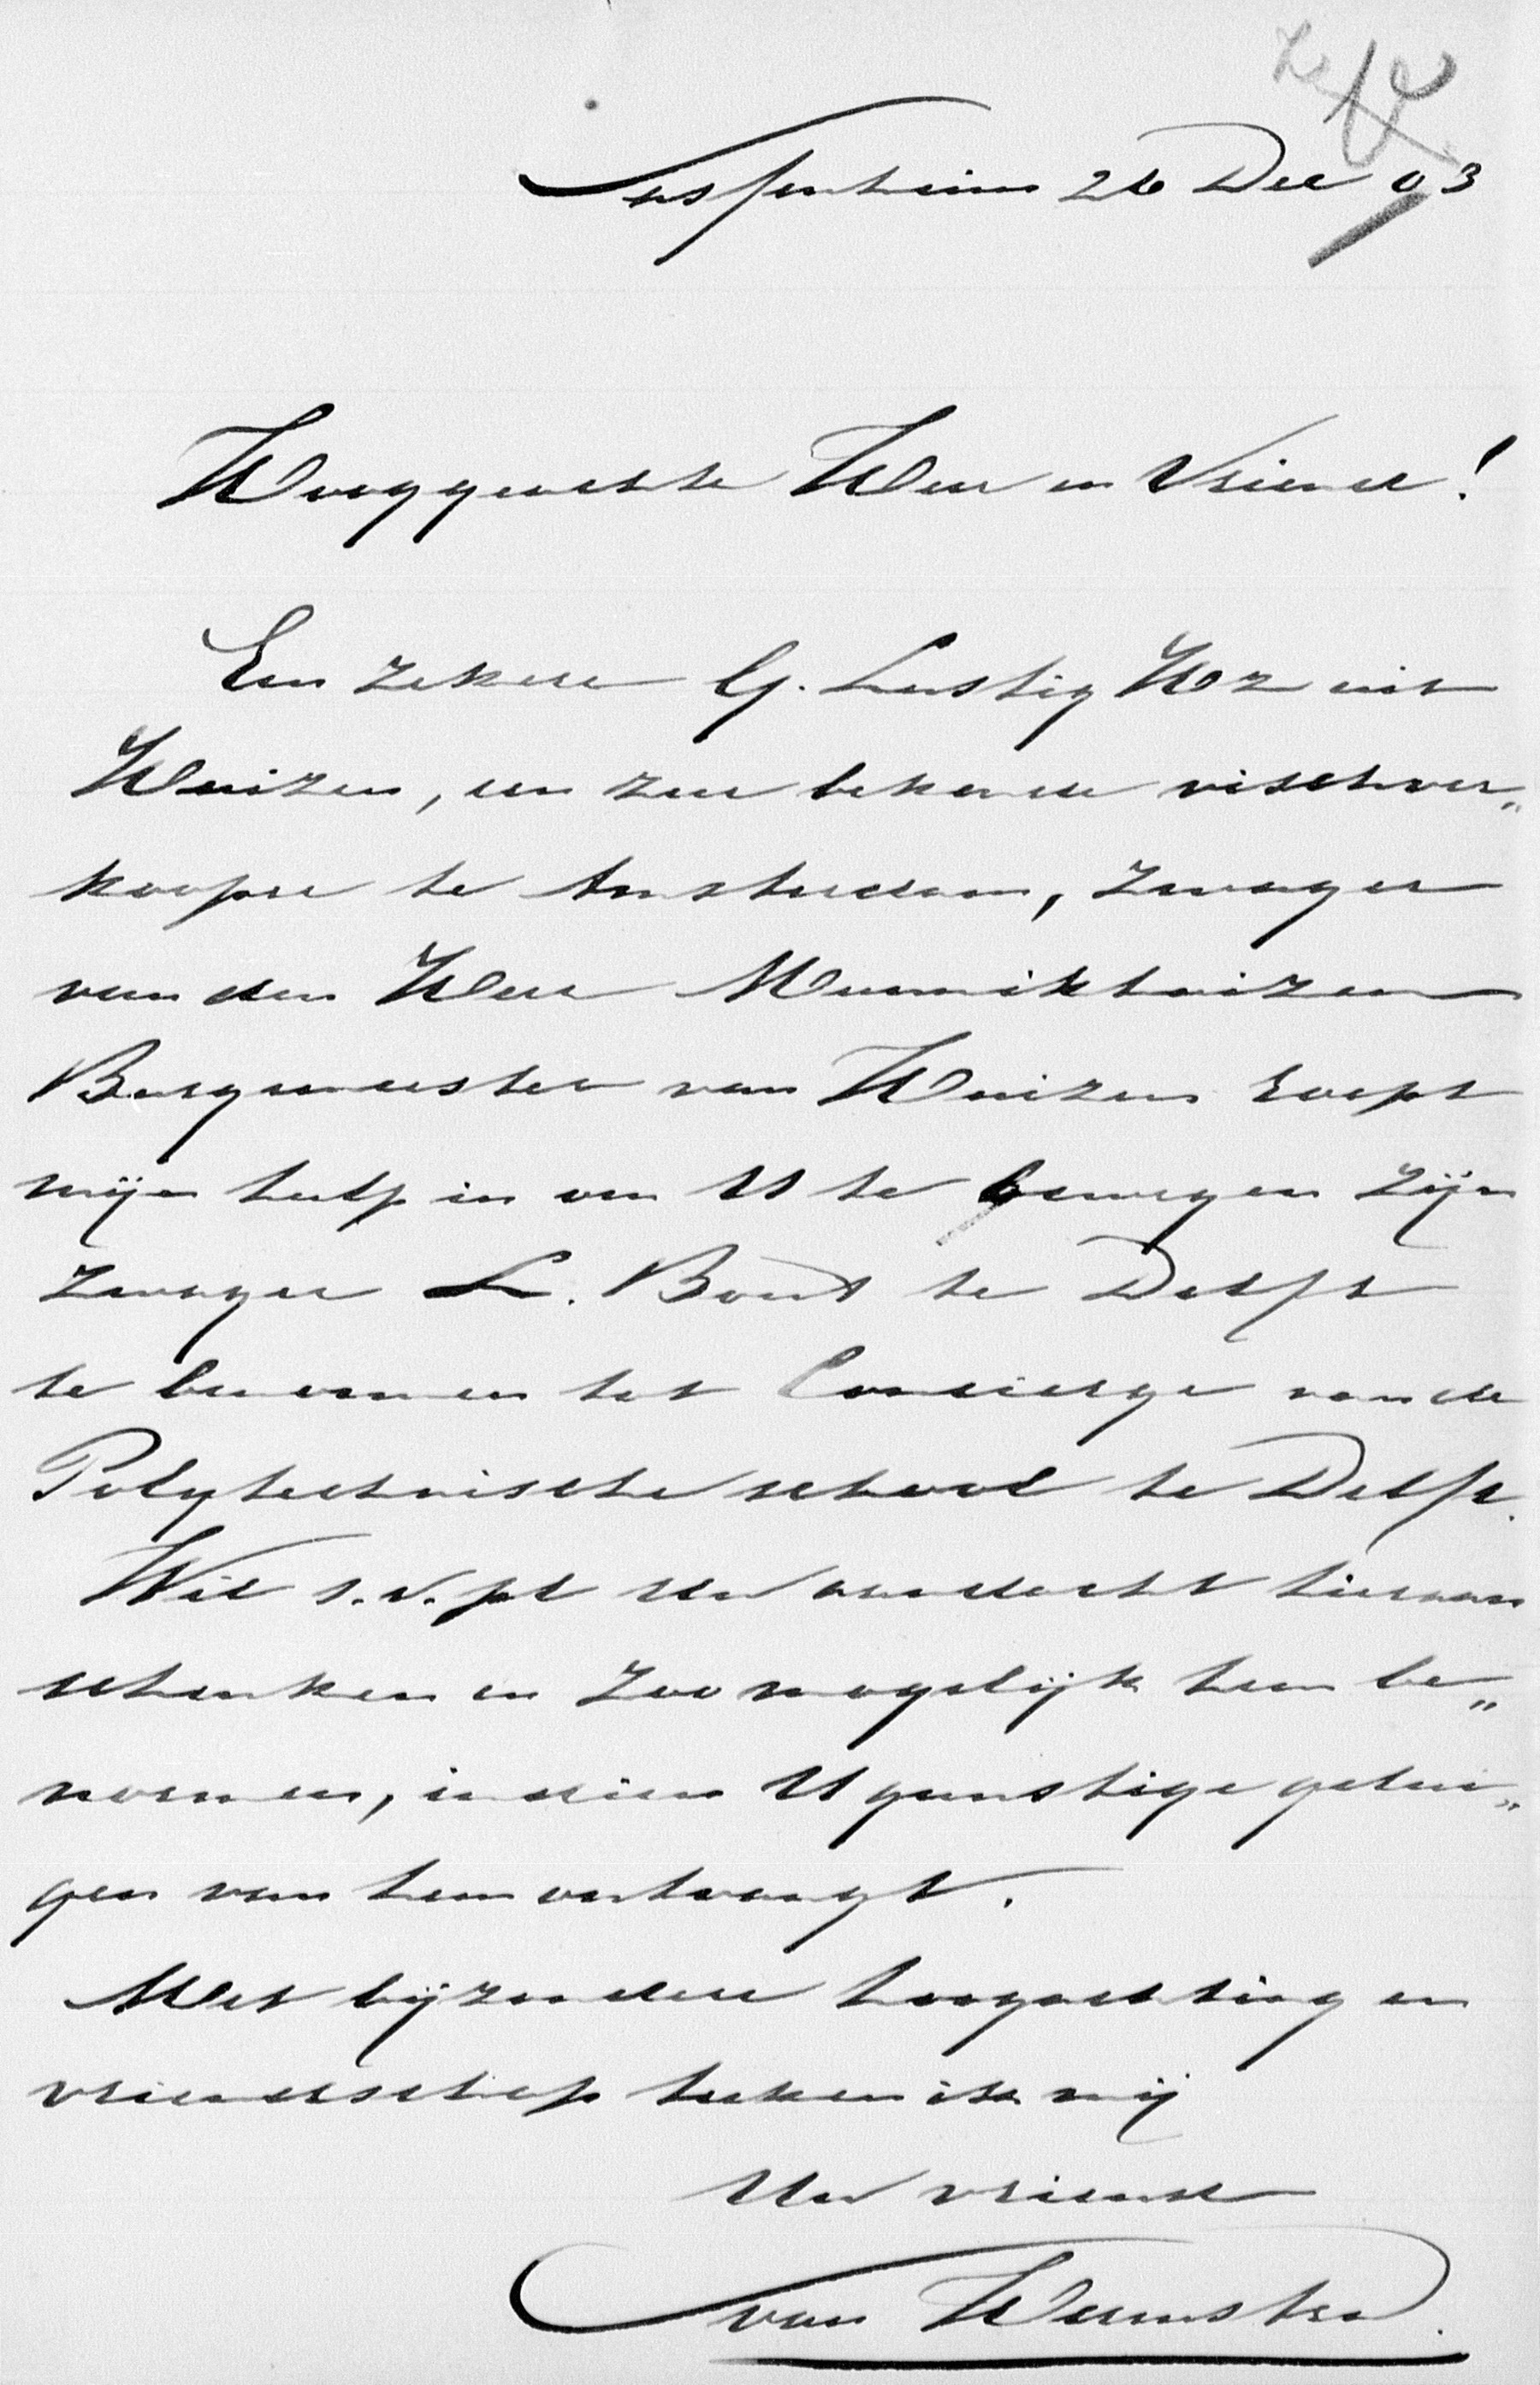 Sassenheim 26 Dec 03
Hooggeachte Heer en Vriend!
Een zekere G. Lustig Hz uit
Huizen, een zeer bekende vischver„
kooper te Amsterdam, zwager
van den Heer Munnikhuizen
Burgemeester van Huizen roept
mijn hulp in om U te bewegen zijn
zwager L. Bout te Delft
te benoemen tot Concierge van de
Polytechnische school te Delft.
Wil s.v.pl Uw aandacht hieraan
schenken en zoo mogelijk hem be„
noemen, indien U gunstige getui„
gen van hem ontvangt.
Met bijzondere hoogachting en
vriendschap teeken ik mij
Uw vriend
van Heemstra